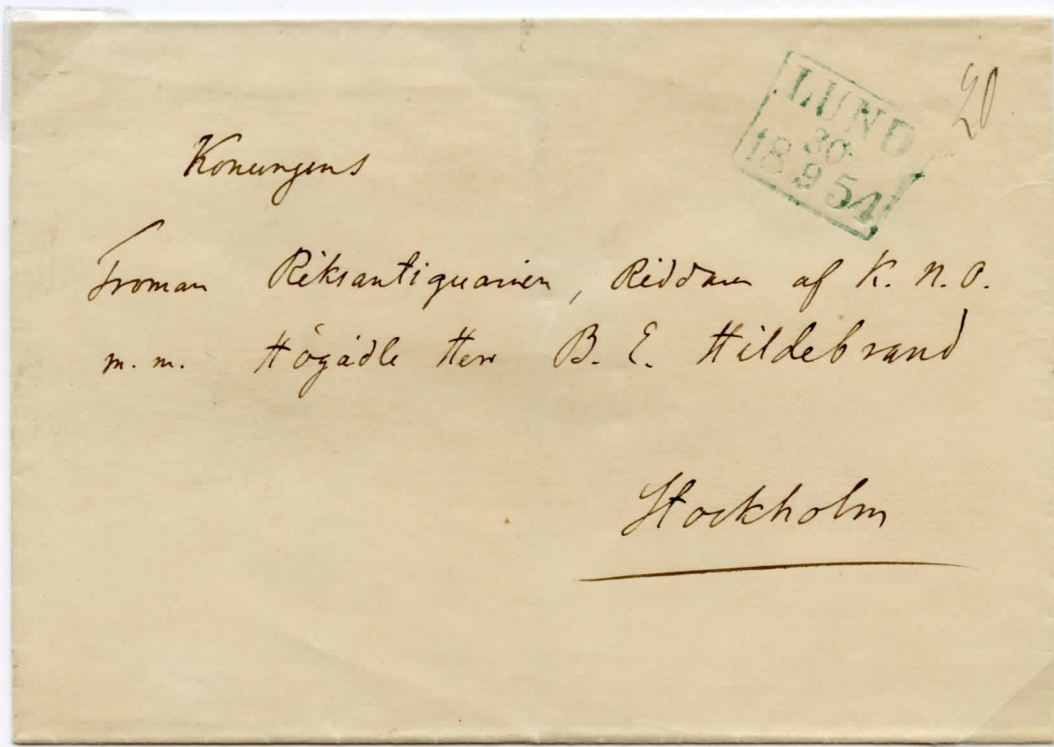 LUND
30.
18 9 54
20
Konungens
Troman Riksantiquarien, Riddaren af K. N. O.
m. m. Högädle Herr B. E. Hildebrand
Stockholm